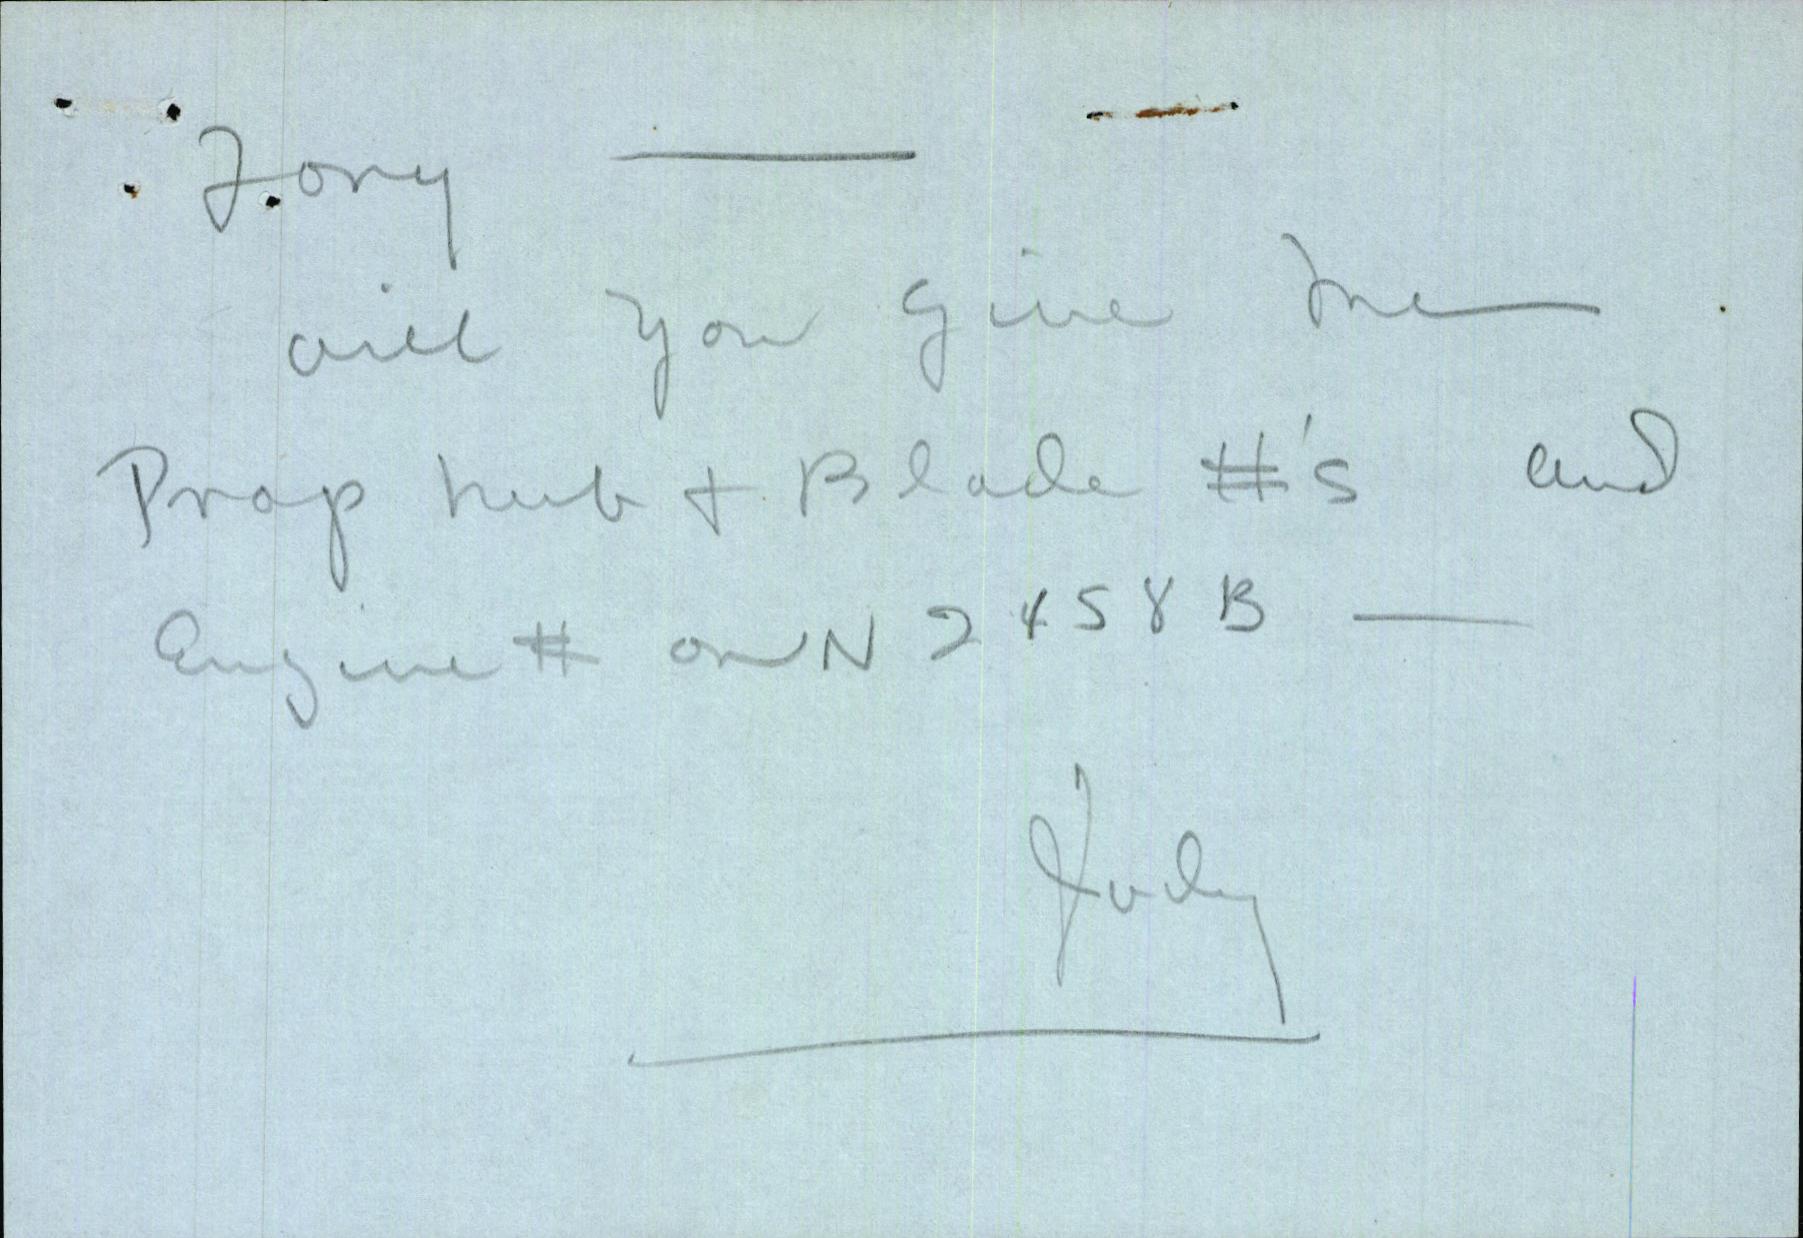 Tony —
will you give me
Prop hub + Blade #'s and
Engine # on N2458B —
Judy